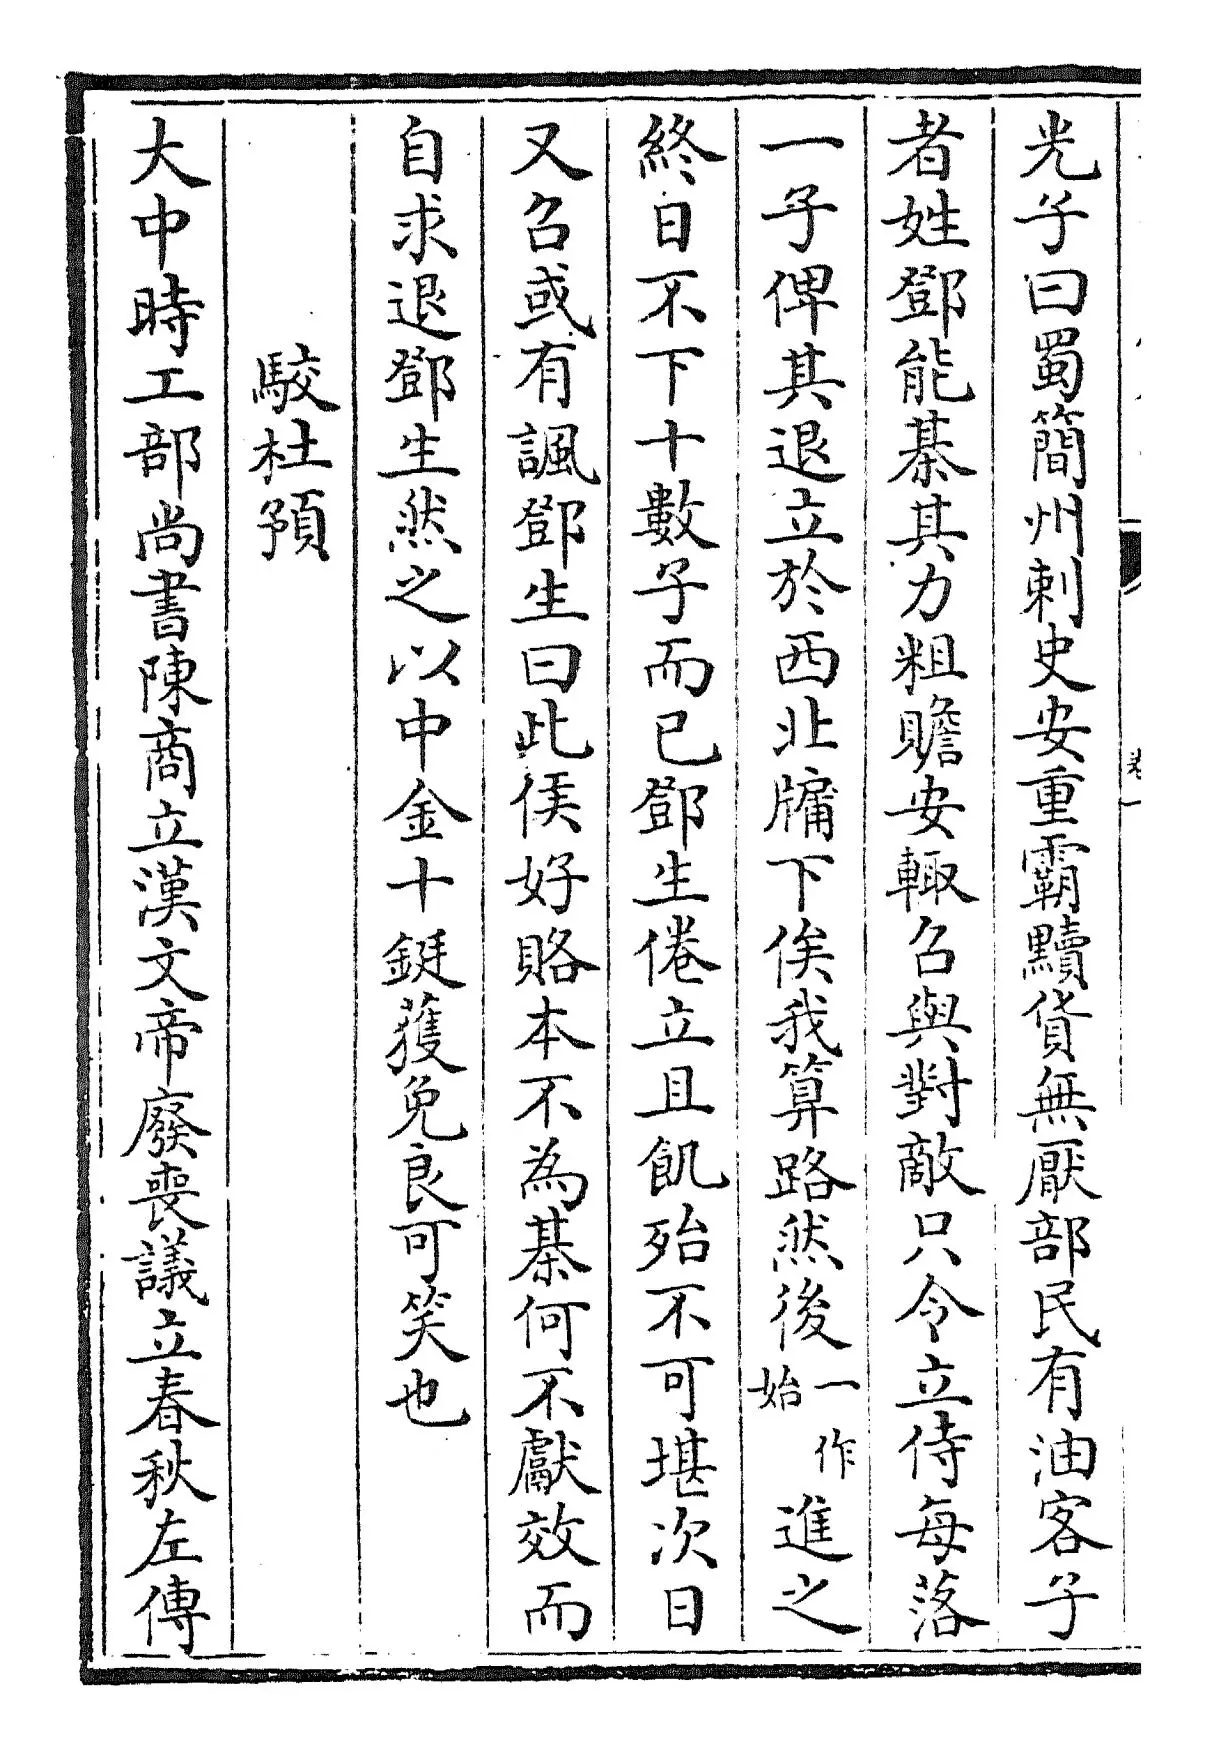 光子曰蜀簡州刺史安重霸黷貨無厭部民有油客子
者姓鄧能棊其力粗贍安輙召與對敵只令立侍每落
一子俾其退立於西北牖下俟我算路然後一作始進之
終日不下十數子而已鄧生倦立且飢殆不可堪次日
又召或有諷鄧生曰此侯好賂本不為棊何不獻效而
自求退鄧生然之以中金十鋌獲免良可笑也
駮杜預
大中時工部尚書陳商立漢文帝廢喪議立春秋左傳